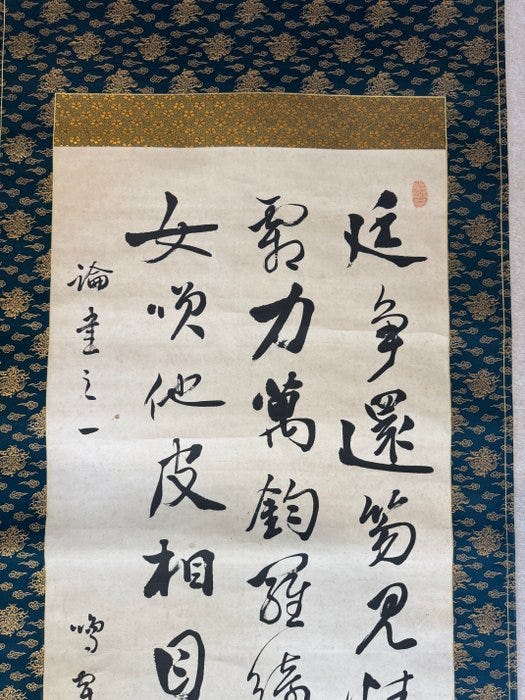 廷争還笏見
力萬鈞羅綺
女咲他皮相目
論書之一
鳴